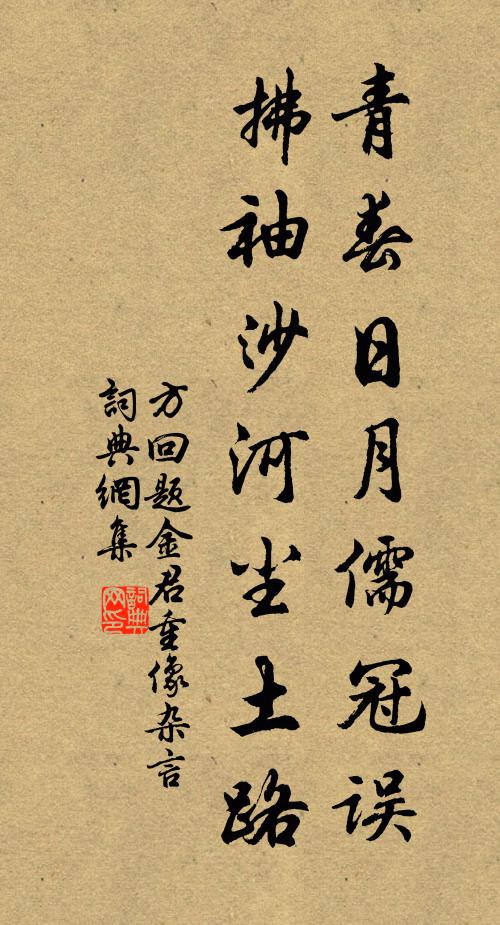 青春日月儒冠误
拂袖沙河尘土路
方回题金君重像杂言
詞典網集
詞典網印